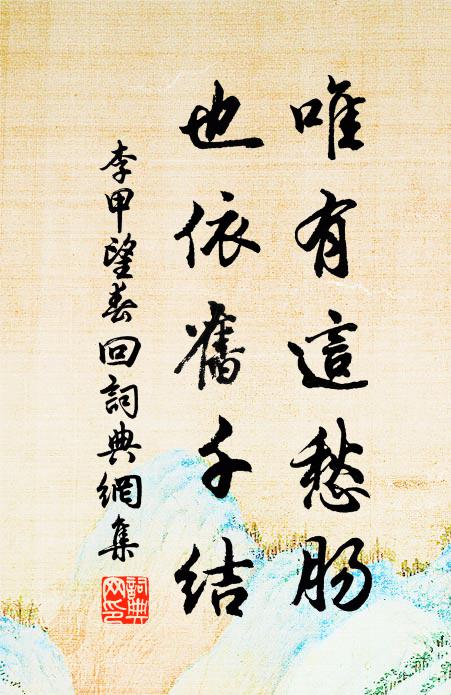 唯有這愁肠
也依舊千结
李甲望春回詞典網集
詞典